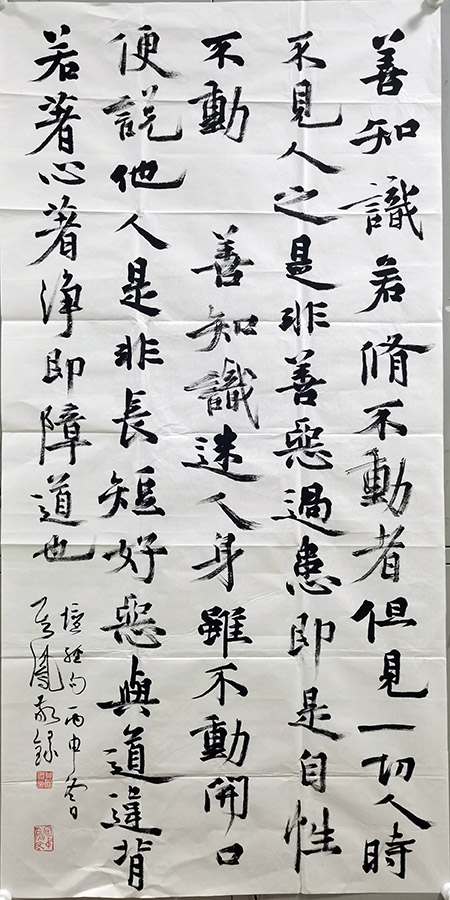 善知識若脩不動者但見一切人時
不見人之是非善惡過患即是自性
不動 善知識迷人身雖不動開口
便説他人是非長短好惡與道違背
若著心著淨即障道也
壇經句丙申冬日
敬錄